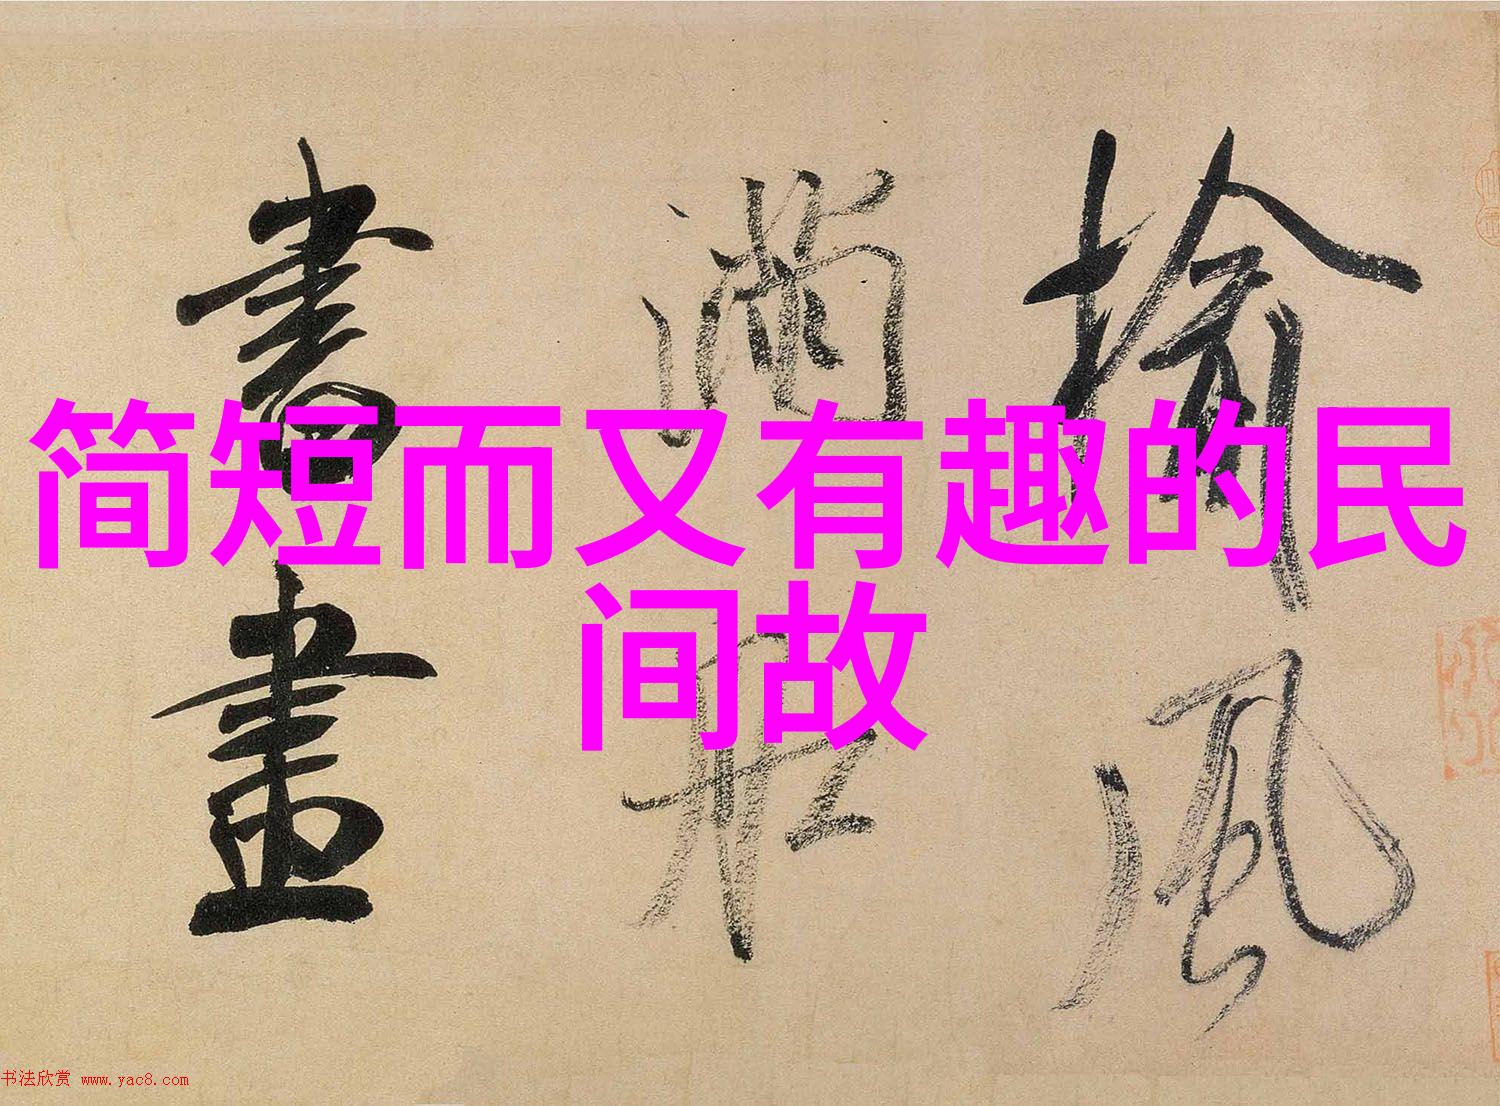 简短而又有趣的民
间故
榆風
滿船
書畫
书法欣赏 www.yac8.com